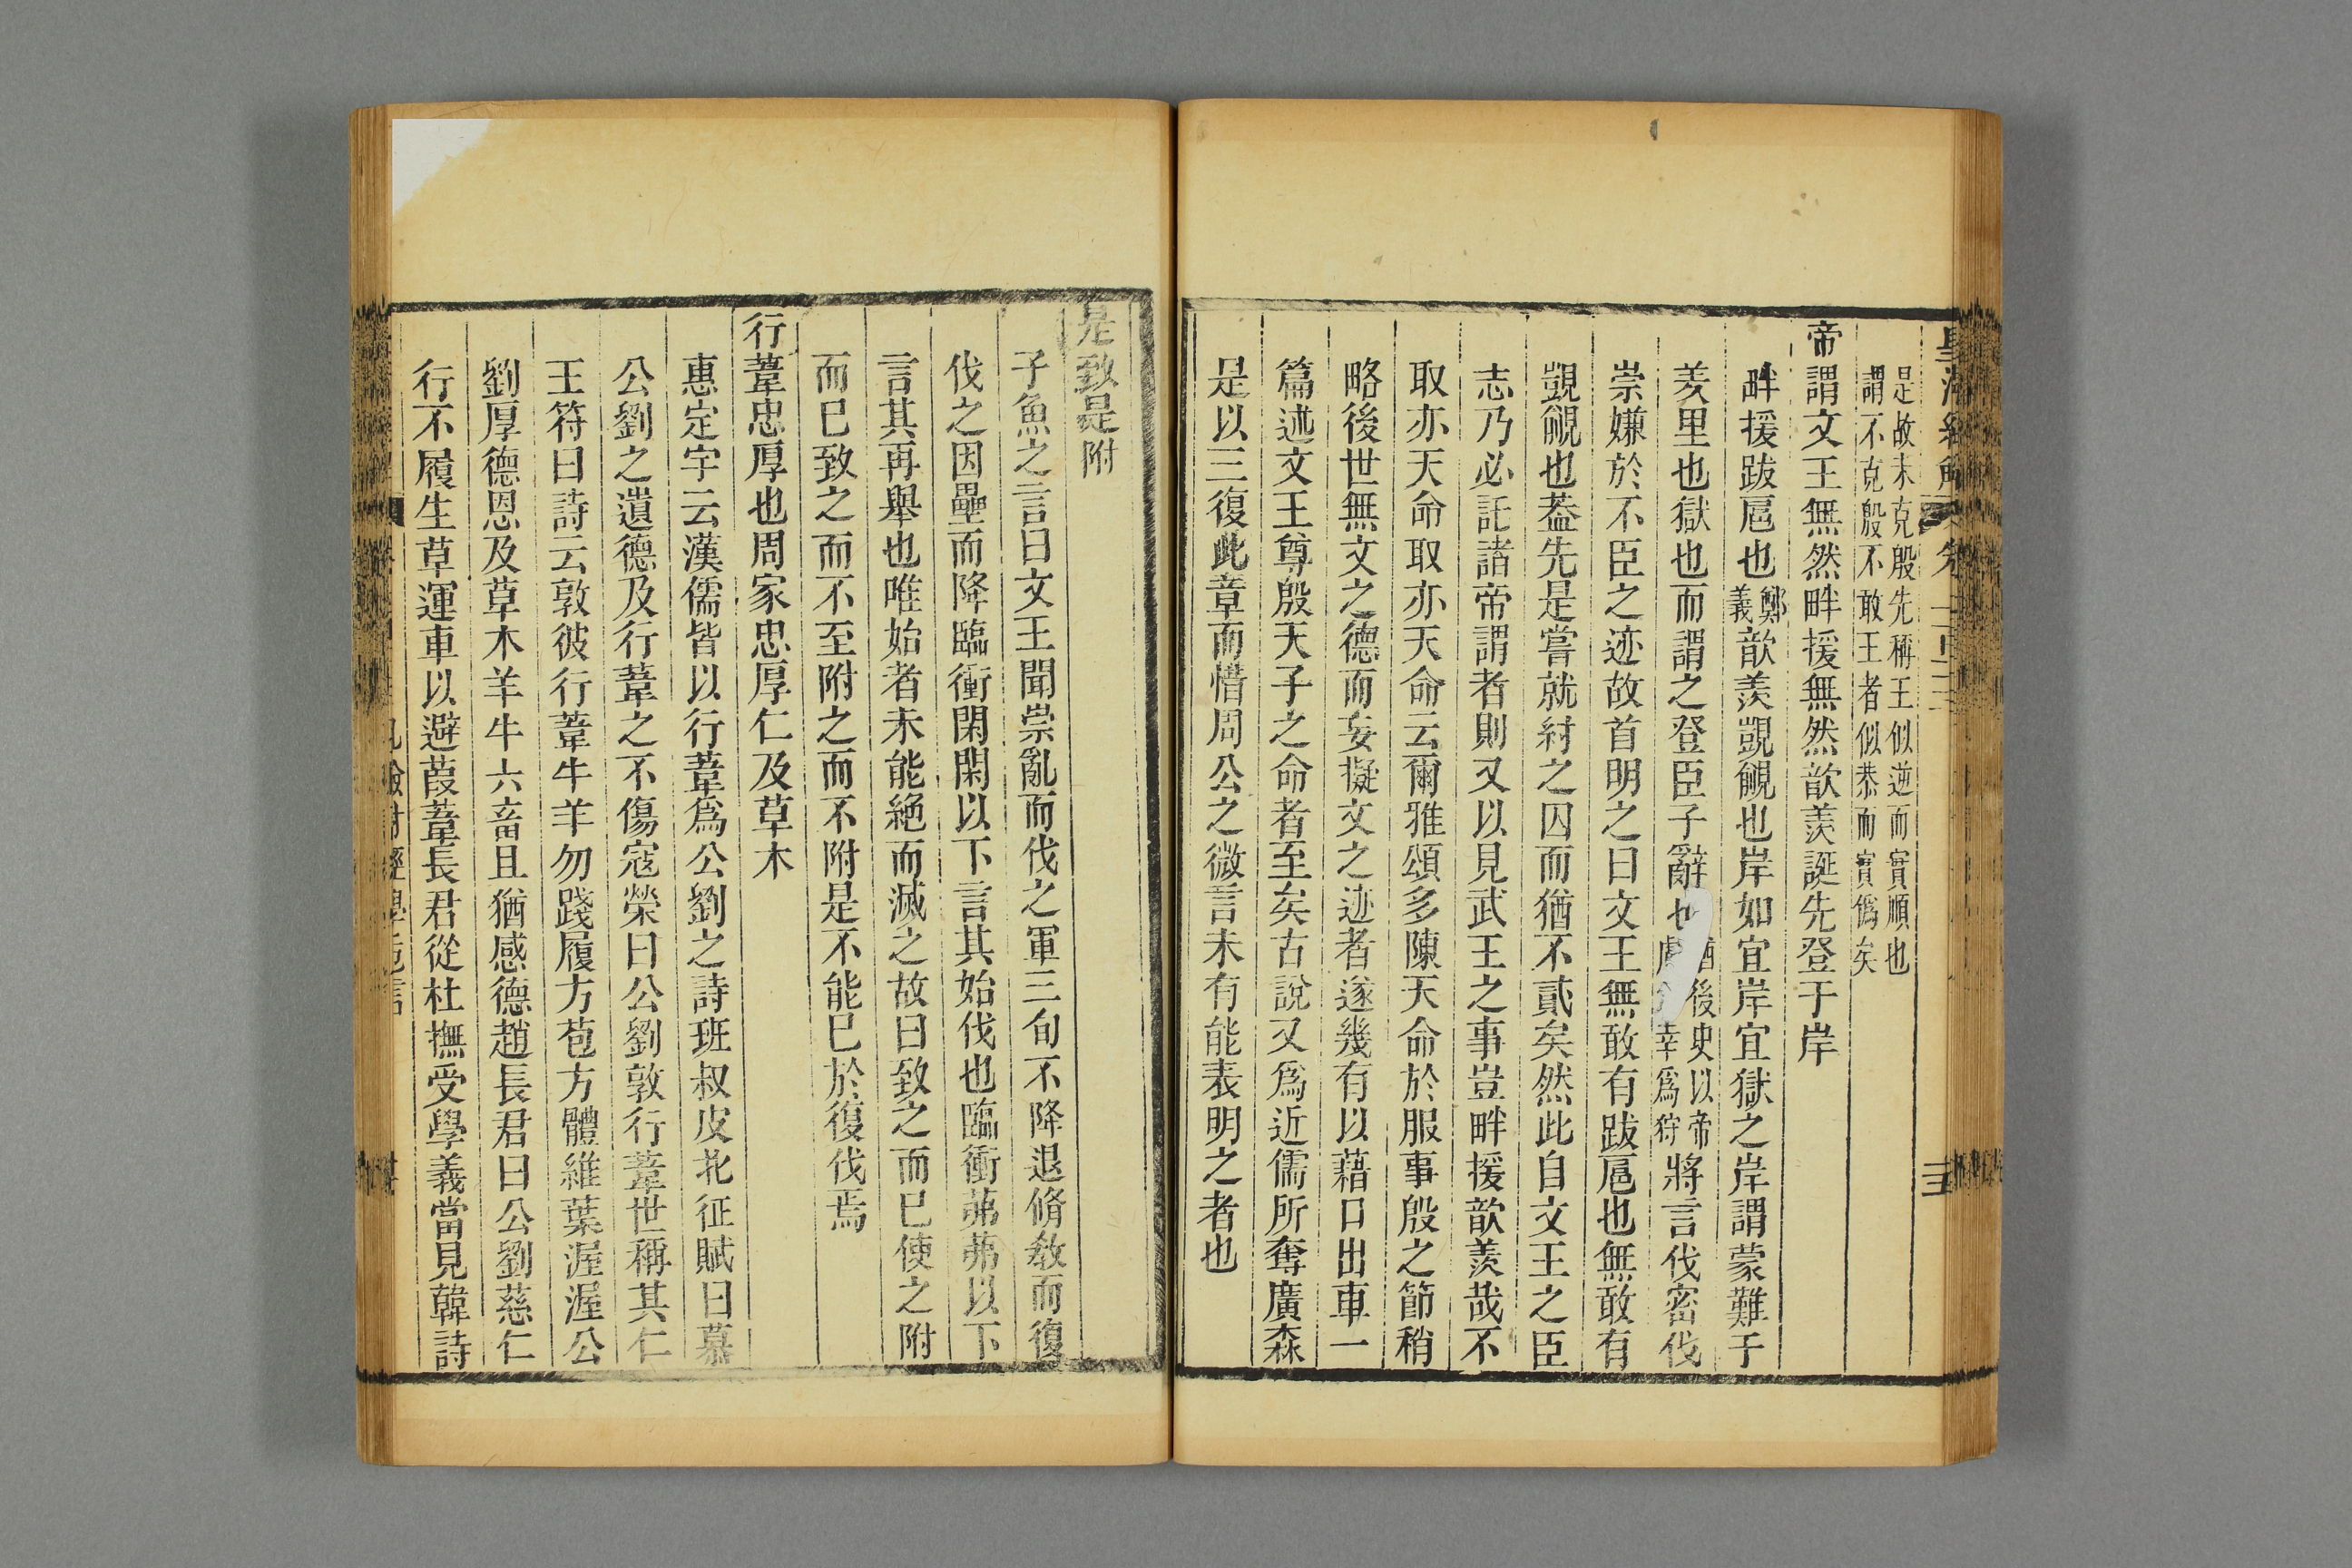 是故未克殷先稱王似逆而實順也
謂不克殷不敢王者似恭而實僞矣
帝謂文王無然畔援無然歆羨誕先登于岸
畔援跋扈也鄭義歆羨覬覦也岸如宜岸宜獄之岸謂蒙難于
羑里也獄也而謂之登臣子辭也後史以帝幸爲狩將言伐密伐
崇嫌於不臣之迹故首明之曰文王無敢有跋扈也無敢有
覬覦也葢先是嘗就紂之囚而猶不貳矣然此自文王之臣
志乃必託諸帝謂者則又以見武王之事豈畔援歆羨哉不
取亦天命取亦天命云爾雅頌多陳天命於服事殷之節稍
略後世無文之德而妄擬文之迹者遂幾有以藉口出車一
篇述文王尊殷天子之命者至矣古說又爲近儒所奪廣森
是以三復此章而惜周公之微言未有能表明之者也
是致是附
子魚之言曰文王聞崇亂而伐之軍三旬不降退脩敎而復
伐之因壘而降臨衝閑閑以下言其始伐也臨衝茀茀以下
言其再舉也唯始者未能絕而滅之故曰致之而已使之附
而已致之而不至附之而不附是不能已於復伐焉
行葦忠厚也周家忠厚仁及草木
惠定宇云漢儒皆以行葦爲公劉之詩班叔皮北征賦曰慕
公劉之遺德及行葦之不傷寇榮曰公劉敦行葦世稱其仁
王符曰詩云敦彼行葦牛羊勿踐履方苞方體維葉渥渥公
劉厚德恩及草木羊牛六畜且猶感德趙長君曰公劉慈仁
行不履生草運車以避葭葦長君從杜撫受學義當見韓詩